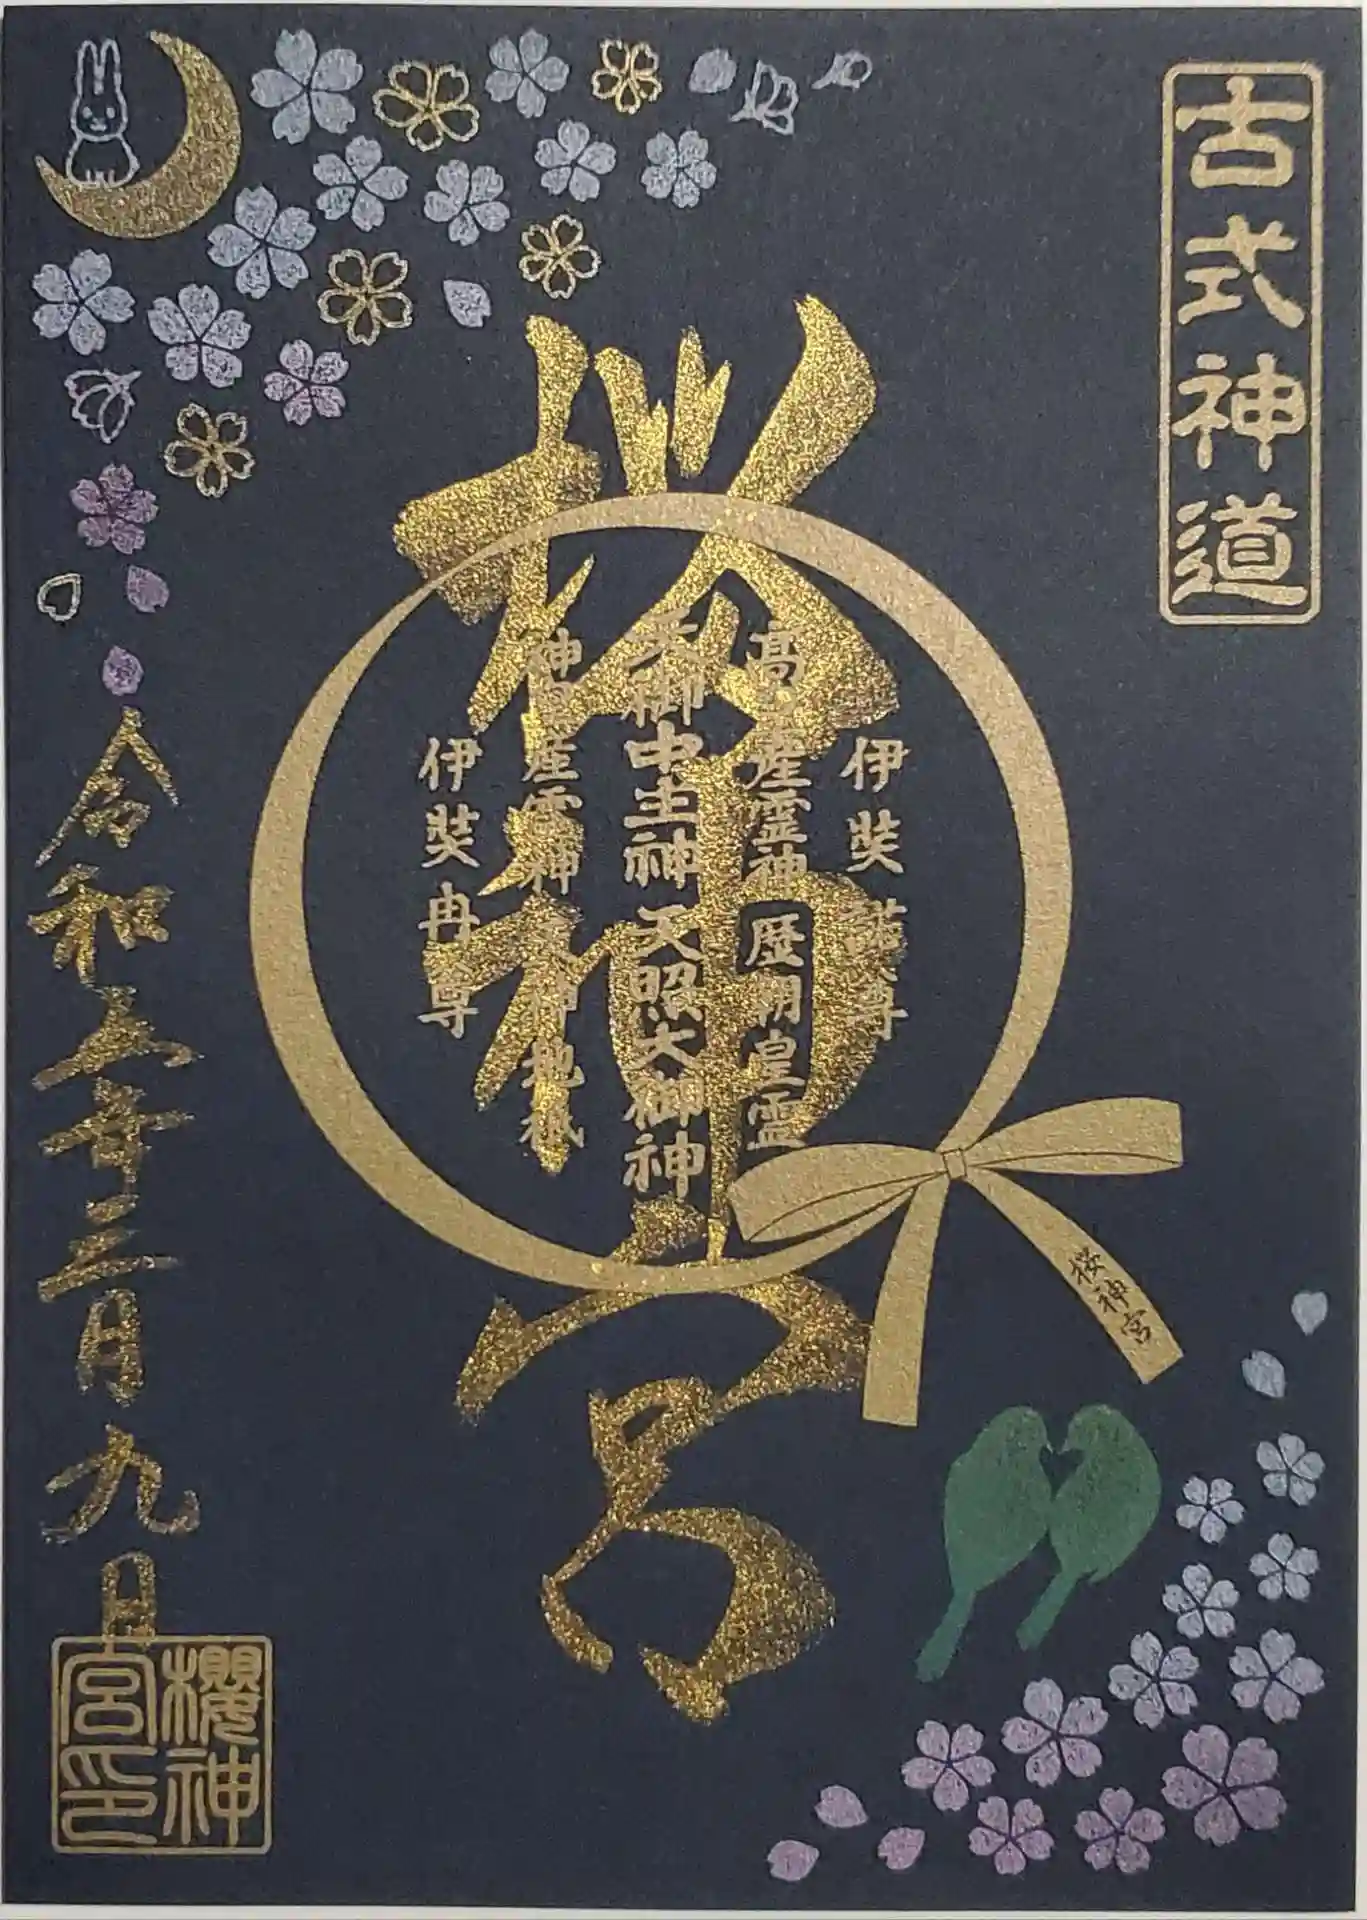 古式神道
桜神宮
伊奘諾尊
高皇産霊神 歴朝皇霊
天御中主神 天照大御神
神皇産霊神 天神地祇
伊奘冉尊
桜神宮
令和五年三月九日
櫻神
宮印